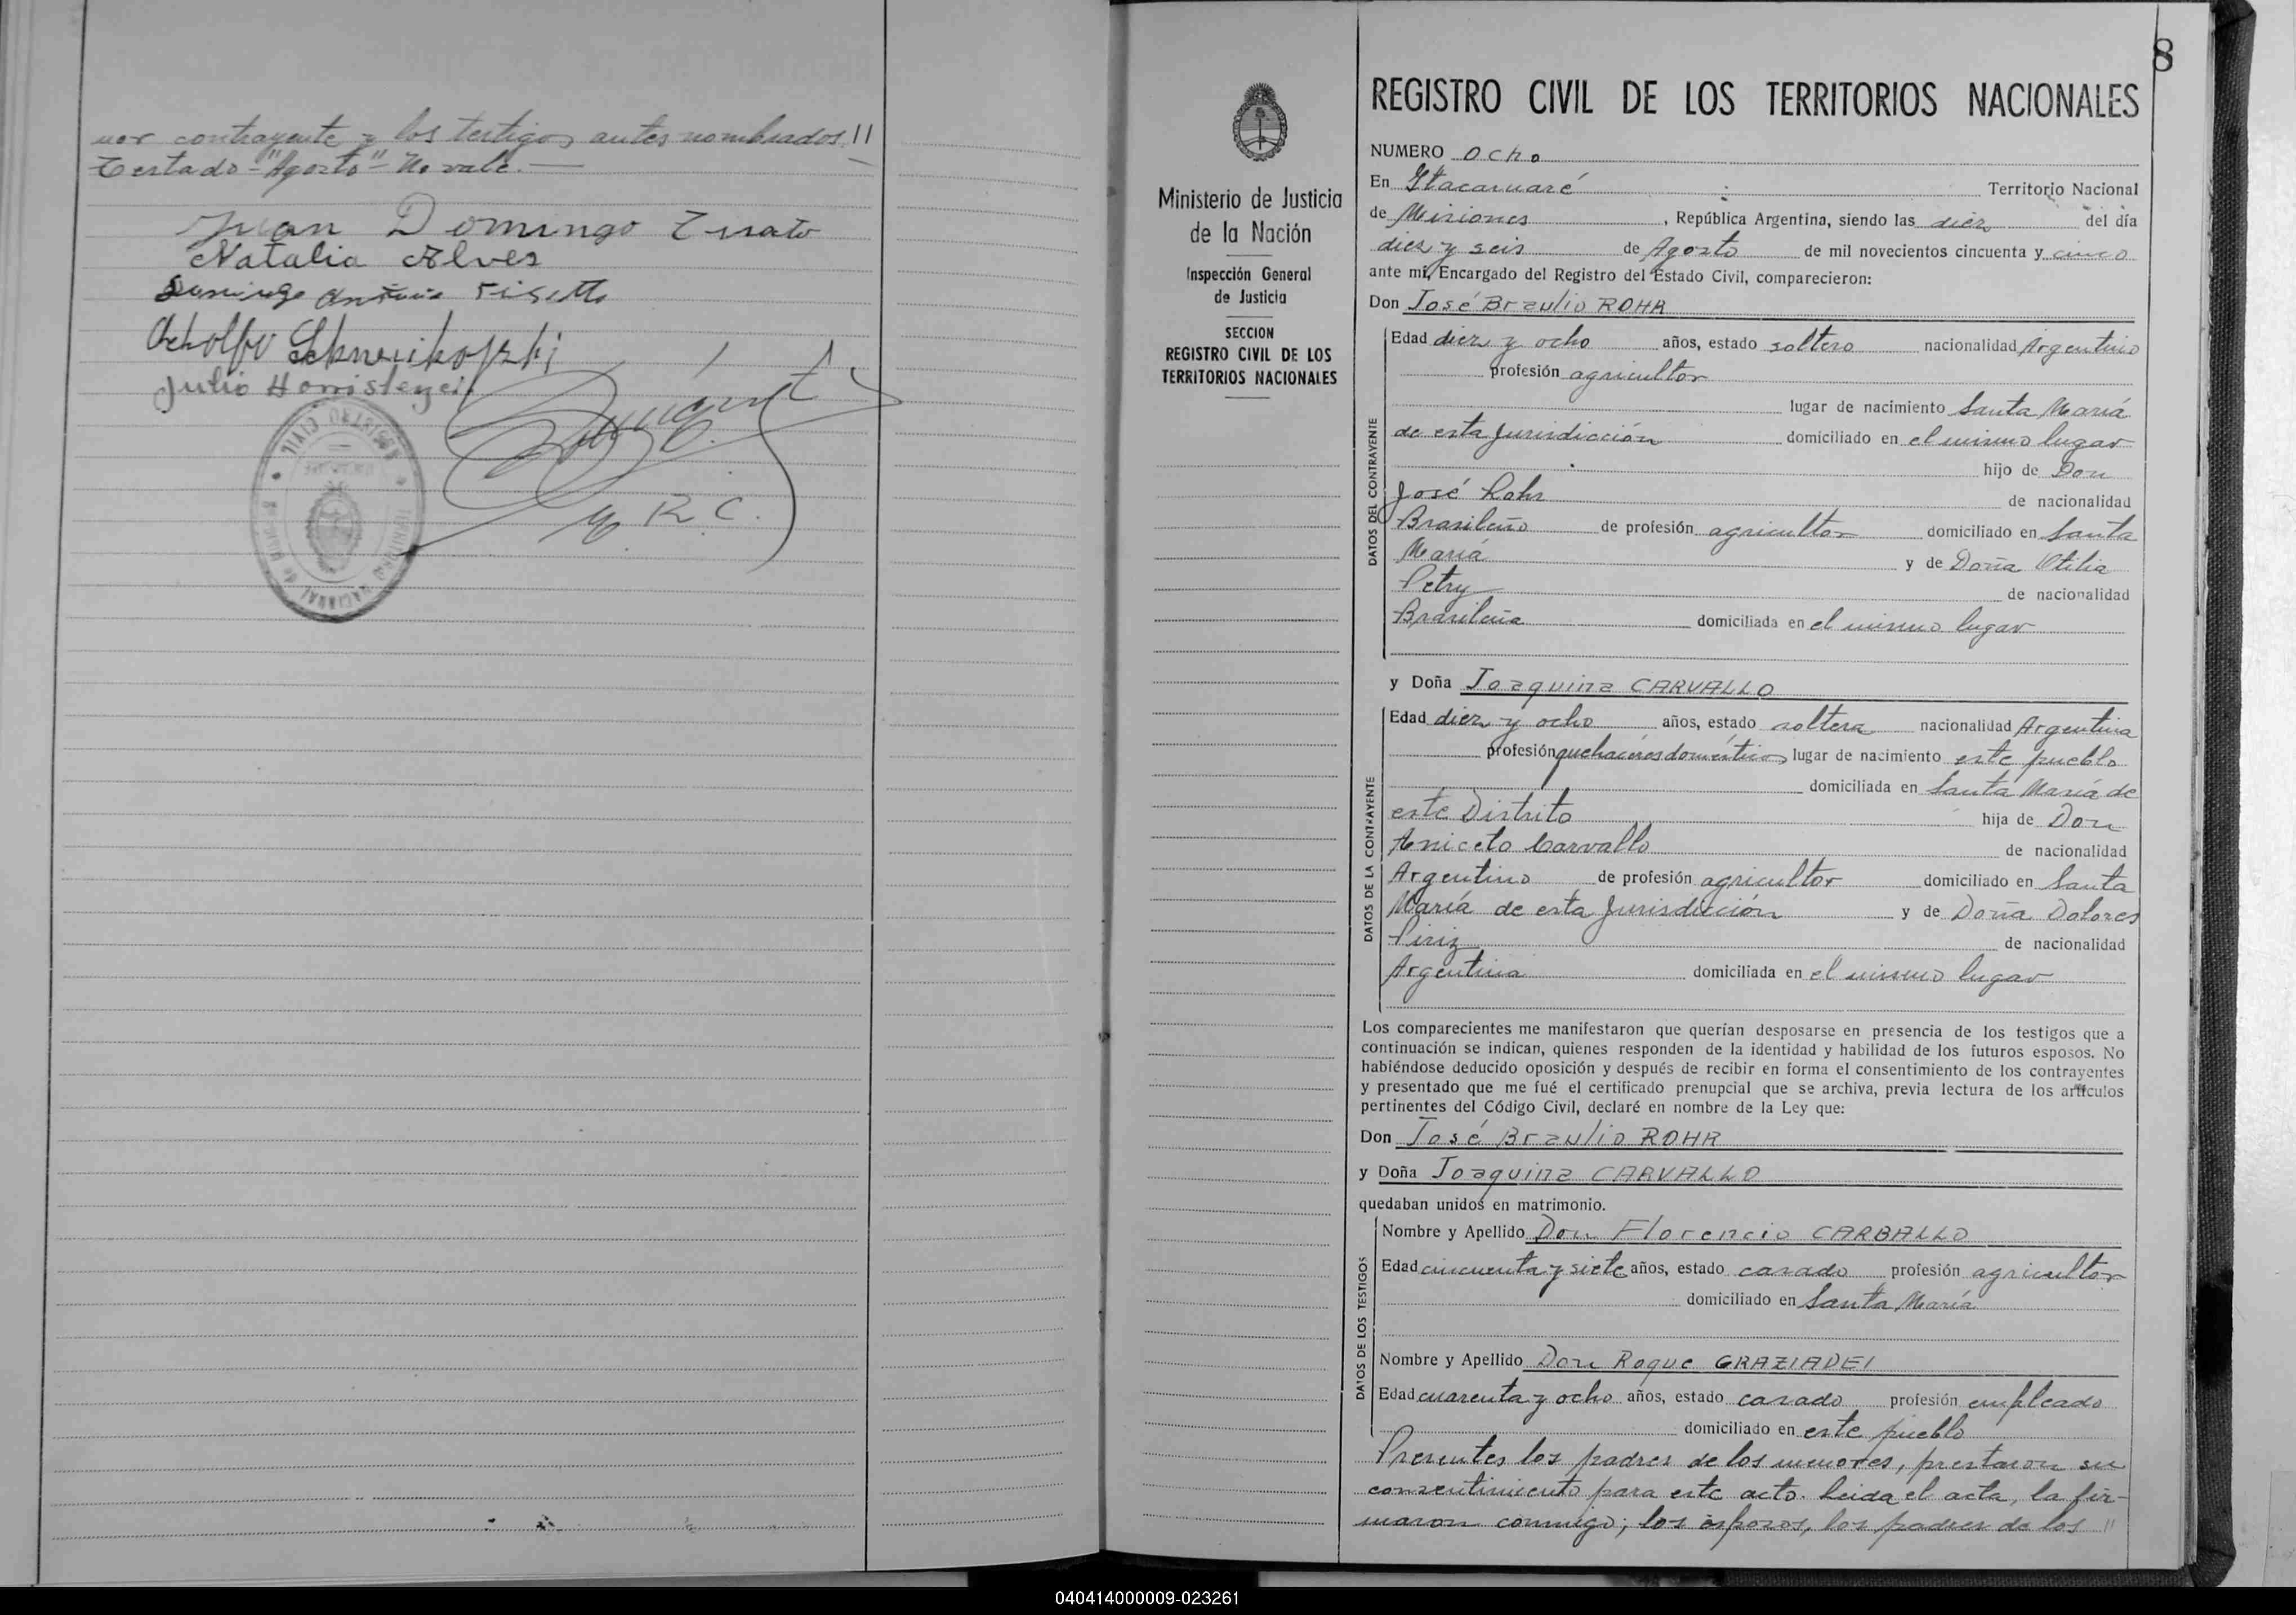 nor contrayente y los testigos antes nombrados.//
Testado-"Agosto"-No vale.—
Juan Domingo
Natalia Alves
Domingo Antonio
Adolfo
Julio
R. C.
REGISTRO CIVIL
8
REGISTRO CIVIL DE LOS TERRITORIOS NACIONALES
Ministerio de Justicia
de la Nación
Inspección General
de Justicia
SECCION
REGISTRO CIVIL DE LOS
TERRITORIOS NACIONALES
NUMERO ocho
En Itacaruaré Territorio Nacional
de Misiones, República Argentina, siendo las diez del día
diez y seis de Agosto de mil novecientos cincuenta y cinco
ante mí, Encargado del Registro del Estado Civil, comparecieron:
Don José Braulio ROHR
DATOS DEL CONTRAYENTE
Edad diez y ocho años, estado soltero nacionalidad Argentino
profesión agricultor
lugar de nacimiento Santa María
de esta Jurisdicción domiciliado en el mismo lugar
hijo de Don
José Rohr de nacionalidad
Brasileño de profesión agricultor domiciliado en Santa
María y de Doña Otilia
Petry de nacionalidad
Brasileña domiciliada en el mismo lugar
y Doña Joaquina CARVALLO
DATOS DE LA CONTRAYENTE
Edad diez y ocho años, estado soltera nacionalidad Argentina
profesión quehaceres domésticos lugar de nacimiento este pueblo
domiciliada en Santa María de
este Distrito hija de Don
Aniceto Carvallo de nacionalidad
Argentino de profesión agricultor domiciliado en Santa
María de esta Jurisdicción y de Doña Dolores
Piriz de nacionalidad
Argentina domiciliada en el mismo lugar
Los comparecientes me manifestaron que querían desposarse en presencia de los testigos que a
continuación se indican, quienes responden de la identidad y habilidad de los futuros esposos. No
habiéndose deducido oposición y después de recibir en forma el consentimiento de los contrayentes
y presentado que me fué el certificado prenupcial que se archiva, previa lectura de los artículos
pertinentes del Código Civil, declaré en nombre de la Ley que:
Don José Braulio ROHR
y Doña Joaquina CARVALLO
quedaban unidos en matrimonio.
DATOS DE LOS TESTIGOS
Nombre y Apellido Don Florencio CARBALLO
Edad cincuenta y siete años, estado casado profesión agricultor
domiciliado en Santa María
Nombre y Apellido Don Roque GRAZIADEI
Edad cuarenta y ocho años, estado casado profesión empleado
domiciliado en este pueblo
Presentes los padres de los menores, prestaron su
consentimiento para este acto. Leida el acta, la fir-
maron conmigo, los esposos, los padres de los //
040414000009-023261